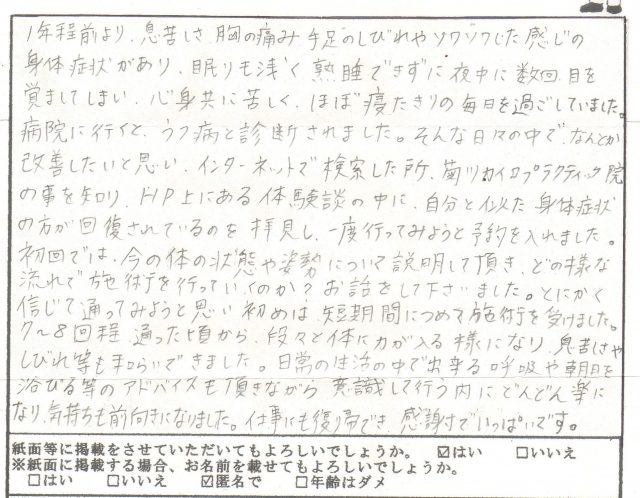 1年程前より、息苦しさ、胸の痛み 手足のしびれやソワソワした感じの
身体症状があり、眠りも浅く 熟睡できずに夜中に数回目を
覚ましてしまい、心身共に苦しく、ほぼ寝たきりの毎日を過ごしていました。
病院に行くと、うつ病と診断されました。そんな日々の中で、なんとか
改善したいと思い、インターネットで検索した所、菊川カイロプラクティック院
の事を知り、HP上にある体験談の中に、自分と似た身体症状
の方が回復されているのを拝見し、一度行ってみようと予約を入れました。
初回では、今の体の状態や姿勢について説明して頂き、どの様な
流れで施術を行っていくのか？お話をして下さいました。とにかく
信じて通ってみようと思い 初めは、短期間につめて施術を受けました。
7～8回程 通った頃から、段々と体に力が入る様になり、息苦しさや
しびれ等も和らいできました。日常の生活の中で出来る呼吸や朝日を
浴びる等のアドバイスも頂きながら 意識して行う内にどんどん楽に
なり、気持ちも前向きになりました。仕事にも復帰でき、感謝でいっぱいです。
紙面等に掲載をさせていただいてもよろしいでしょうか。 ☑はい □いいえ
※紙面に掲載する場合、お名前を載せてもよろしいでしょうか。
□はい □いいえ ☑匿名で □年齢はダメ